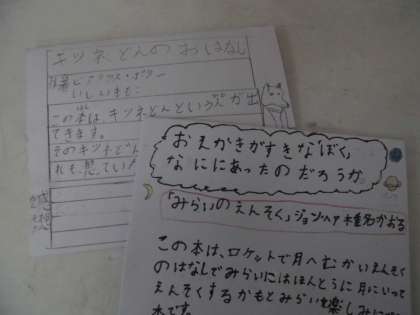 キツネどんのおはなし
著 ビアトリクス・ポター
いしいももこ
この本は、キツネどんという
出
てきます。
そのキツネどん
れも、悪い
感想
おえかきがすきなぼく、
なににあったのだろうか
「みらいのえんそく」ジョン・ヘア 椎名かおる
この本は、ロケットで月へむかいえんそく
のはなしでみらいにはほんとうに月にいって
えんそくするかもとみらいを楽しみに
本です。